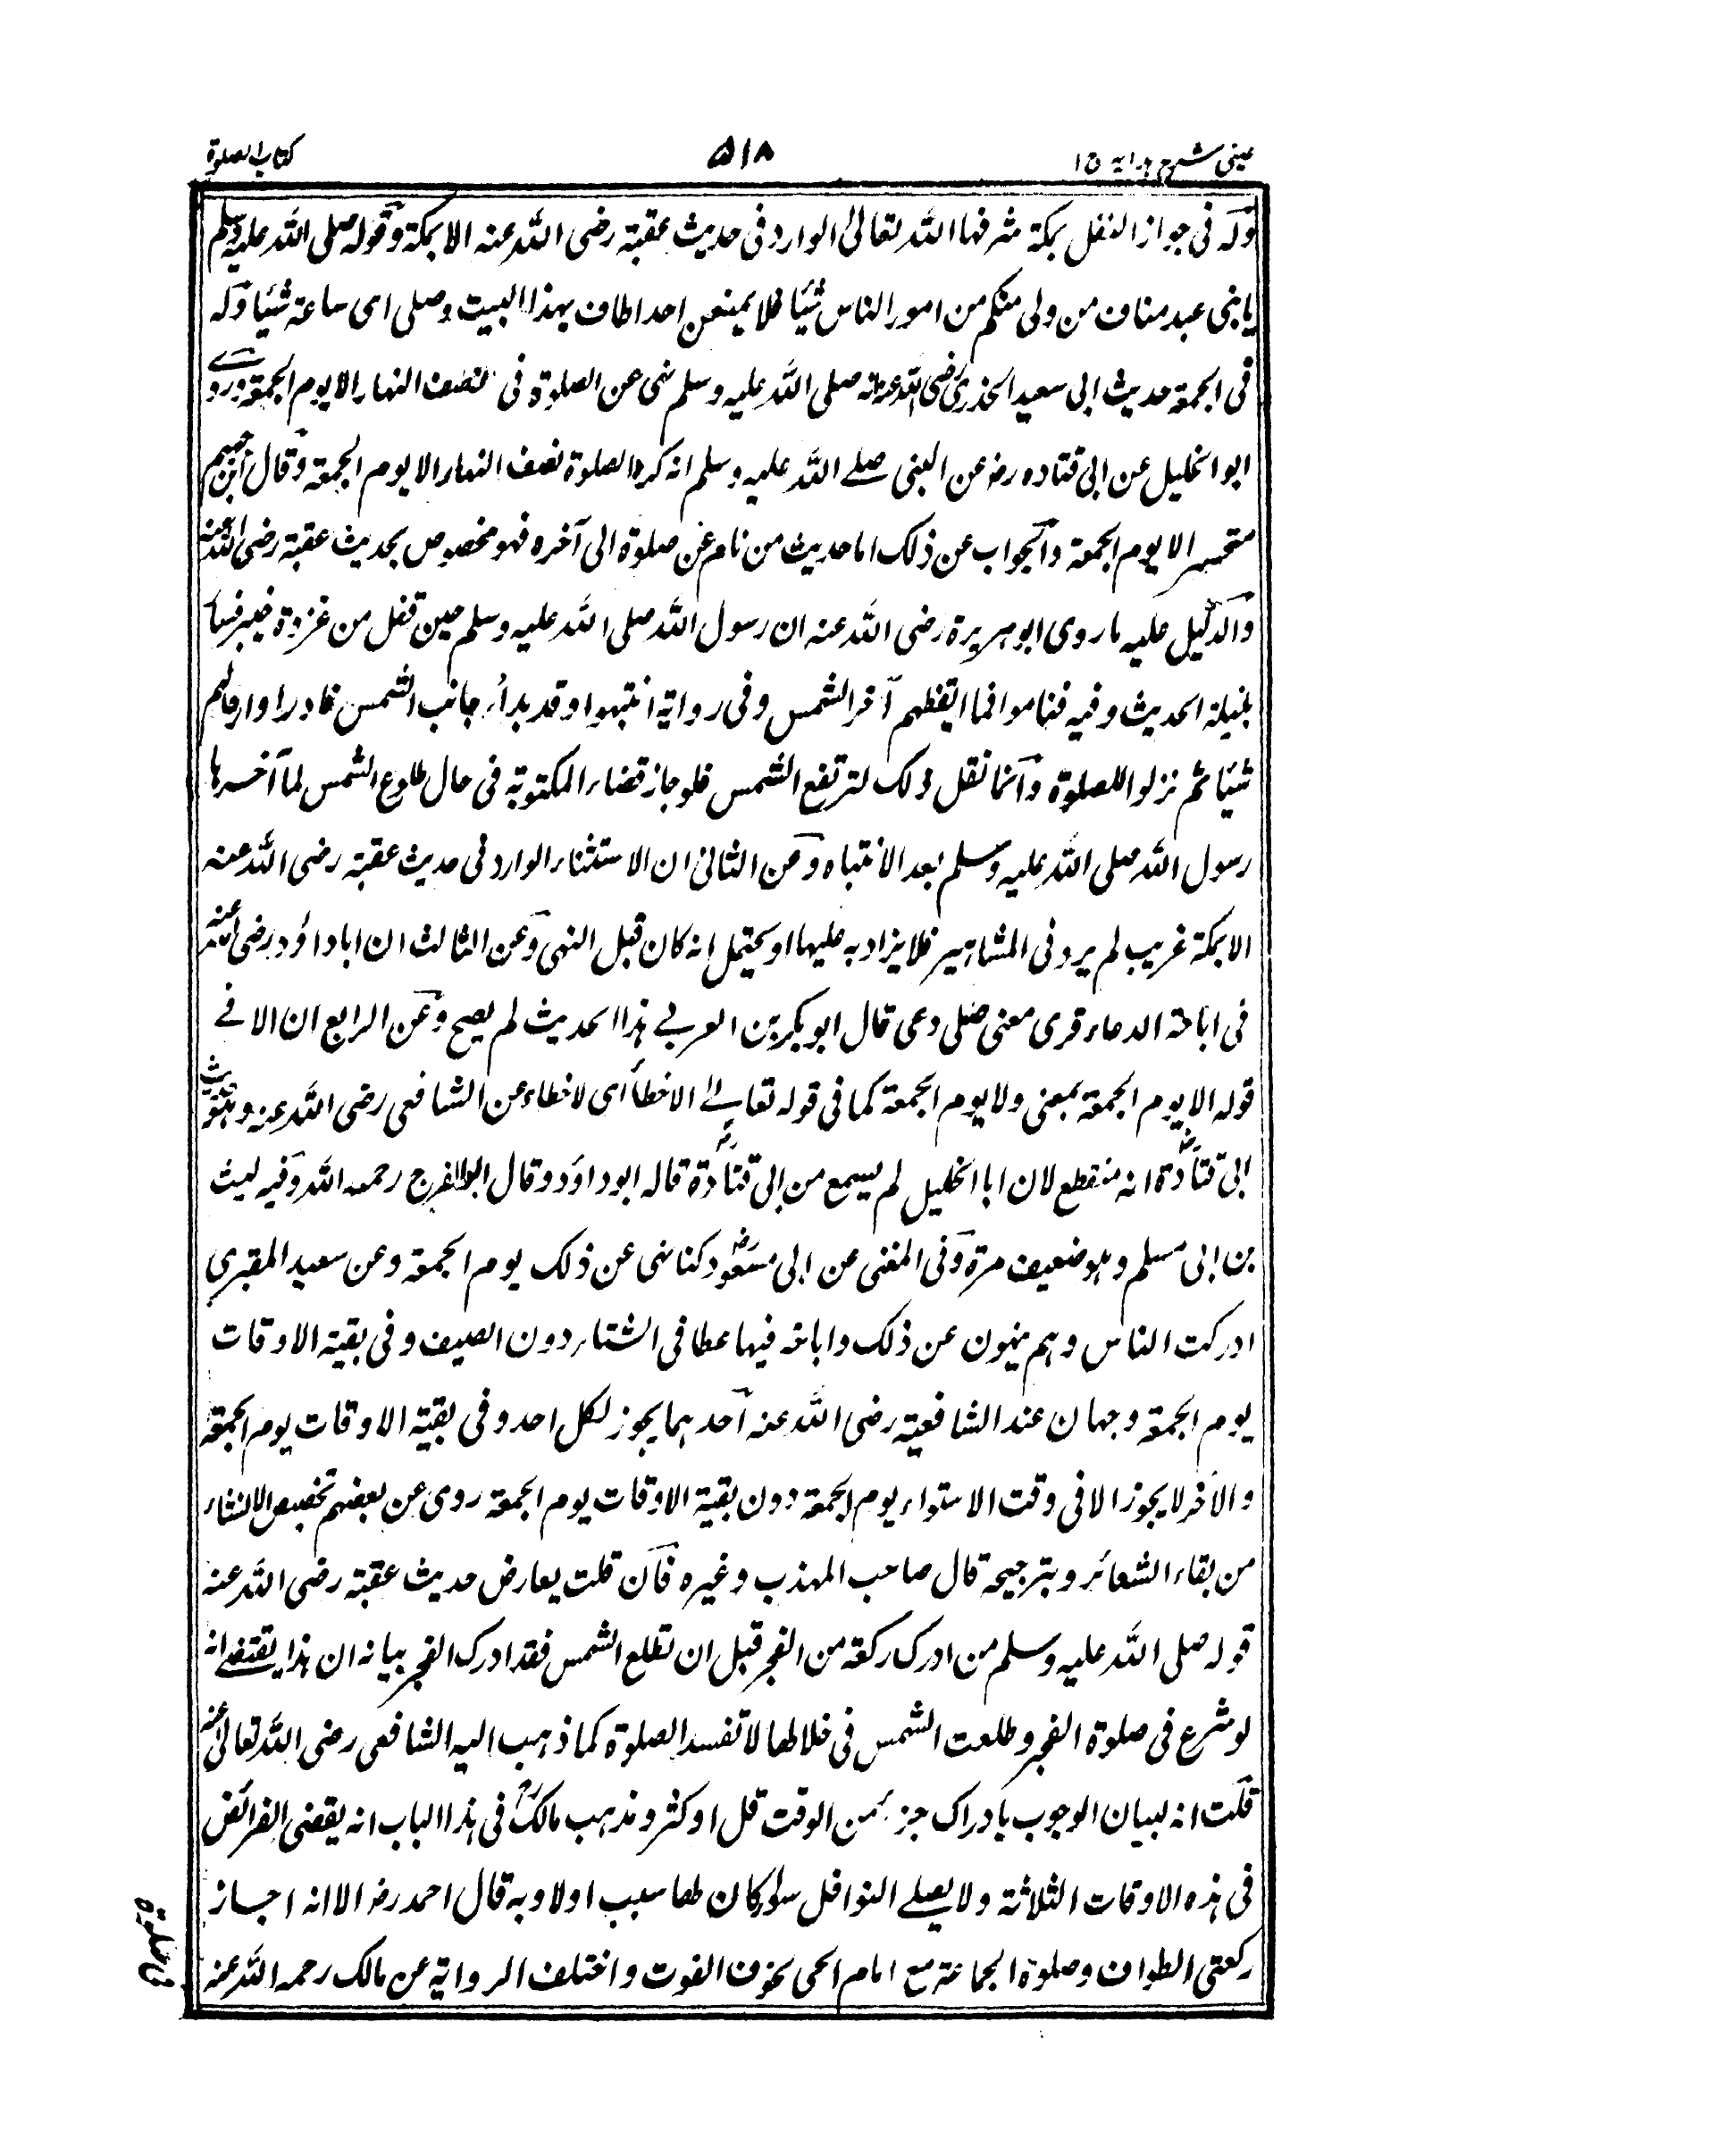 عینی شرح ہدایہ ج ۱
۵۱۸
کتاب الصلوة
وله فی جواز النفل بمکة شرفها اللہ تعالیٰ الوارد فی حدیث عقبة رضی اللہ عنه الا بمکة وقوله صلی اللہ علیه وسلم
یا بنی عبد مناف من ولی منکم من امور الناس شیئا فلا یمنعن احدا طاف بهذا البیت وصلی ای ساعة شیئا وله
فی الجمعة حدیث ابی سعید الخدری رضی اللہ عنه انه صلی اللہ علیه وسلم نهی عن الصلوة فی نصف النهار الا یوم الجمعة وروے
ابو الخلیل عن ابی قتاده رض عن النبی صلے اللہ علیه وسلم انه کره الصلوة نصف النهار الا یوم الجمعة وقال ان جهنم
تسجر الا یوم الجمعة والجواب عن ذلک اما حدیث من نام عن صلوة الی آخره فهو مخصوص بحدیث عقبة رضی اللہ عنه
والدلیل علیه ما روی ابو هریرة رضی اللہ عنه ان رسول اللہ صلی اللہ علیه وسلم حین قفل من غزوة خیبر فسار
بلیلة الحدیث وفیه فناموا فما ایقظهم آخر الشمس وفی روایة انتبهوا وقد بدأ جانب الشمس فقادوا رواحلهم
شیئا ثم نزلوا للصلوة وانما نقل ذلک لترتفع الشمس فلو جاز قضاء المکتوبة فی حال طلوع الشمس لما آخرها
رسول اللہ صلی اللہ علیه وسلم بعد الانتباه وعن الثانی ان الاستثناء الوارد فی حدیث عقبة رضی اللہ عنه
الا بمکة غریب لم یرد فی المشاهیر فلا یزاد به علیها او یحتمل انه کان قبل النهی وعن الثالث ان ابا داؤد رضی اللہ عنه
فی اباحة الدعاء قری معنی صلی دعی قال ابو بکر بن العربے هذا الحدیث لم یصح وعن الرابع ان الا فے
قوله الا یوم الجمعة بمعنی ولا یوم الجمعة کما فی قوله تعالے الا خطأ ای لا خطاء عن الشافعی رضی اللہ عنه وحدیث
ابی قتادة انه منقطع لان ابا الخلیل لم یسمع من ابی قتادة قاله ابو داؤد وقال ابو الفرج رحمه اللہ وفیه لیث
بن ابی مسلم وهو ضعیف مرة وفی المغنی عن ابی مسعود کنا ننهی عن ذلک یوم الجمعة وعن سعید المقبری
ادرکت الناس وهم ینهون عن ذلک واباحه فیها عطا فی الشتاء دون الصیف وفی بقیة الاوقات
یوم الجمعة وجهان عند الشافعیة رضی اللہ عنه احدهما یجوز لکل احد وفی بقیة الاوقات یوم الجمعة
والآخر لا یجوز الا فی وقت الاستواء یوم الجمعة دون بقیة الاوقات یوم الجمعة روی عن بعضهم تخصیص الانشاء
من بقاء الشعائر وبترجیحه قال صاحب المهذب وغیره فان قلت یعارض حدیث عقبة رضی اللہ عنه
قوله صلی اللہ علیه وسلم من ادرک رکعة من الفجر قبل ان تطلع الشمس فقد ادرک الفجر بیانه ان هذا یقتضے انه
لو شرع فی صلوة الفجر وطلعت الشمس فی خلالها لا تفسد الصلوة کما ذهب الیه الشافعی رضی اللہ تعالیٰ عنه
قلت انه لبیان الوجوب بادراک جزء من الوقت قل او کثر ومذهب مالک فی هذا الباب انه یقضی الفرائض
فی هذه الاوقات الثلاثة ولا یصلے النوافل سواء کان لها سبب اولا وبه قال احمد رض الا انه اجاز
رکعتی الطواف وصلوة الجماعة مع امام الحی بخوف الفوت واختلف الروایة عن مالک رحمه اللہ عنه